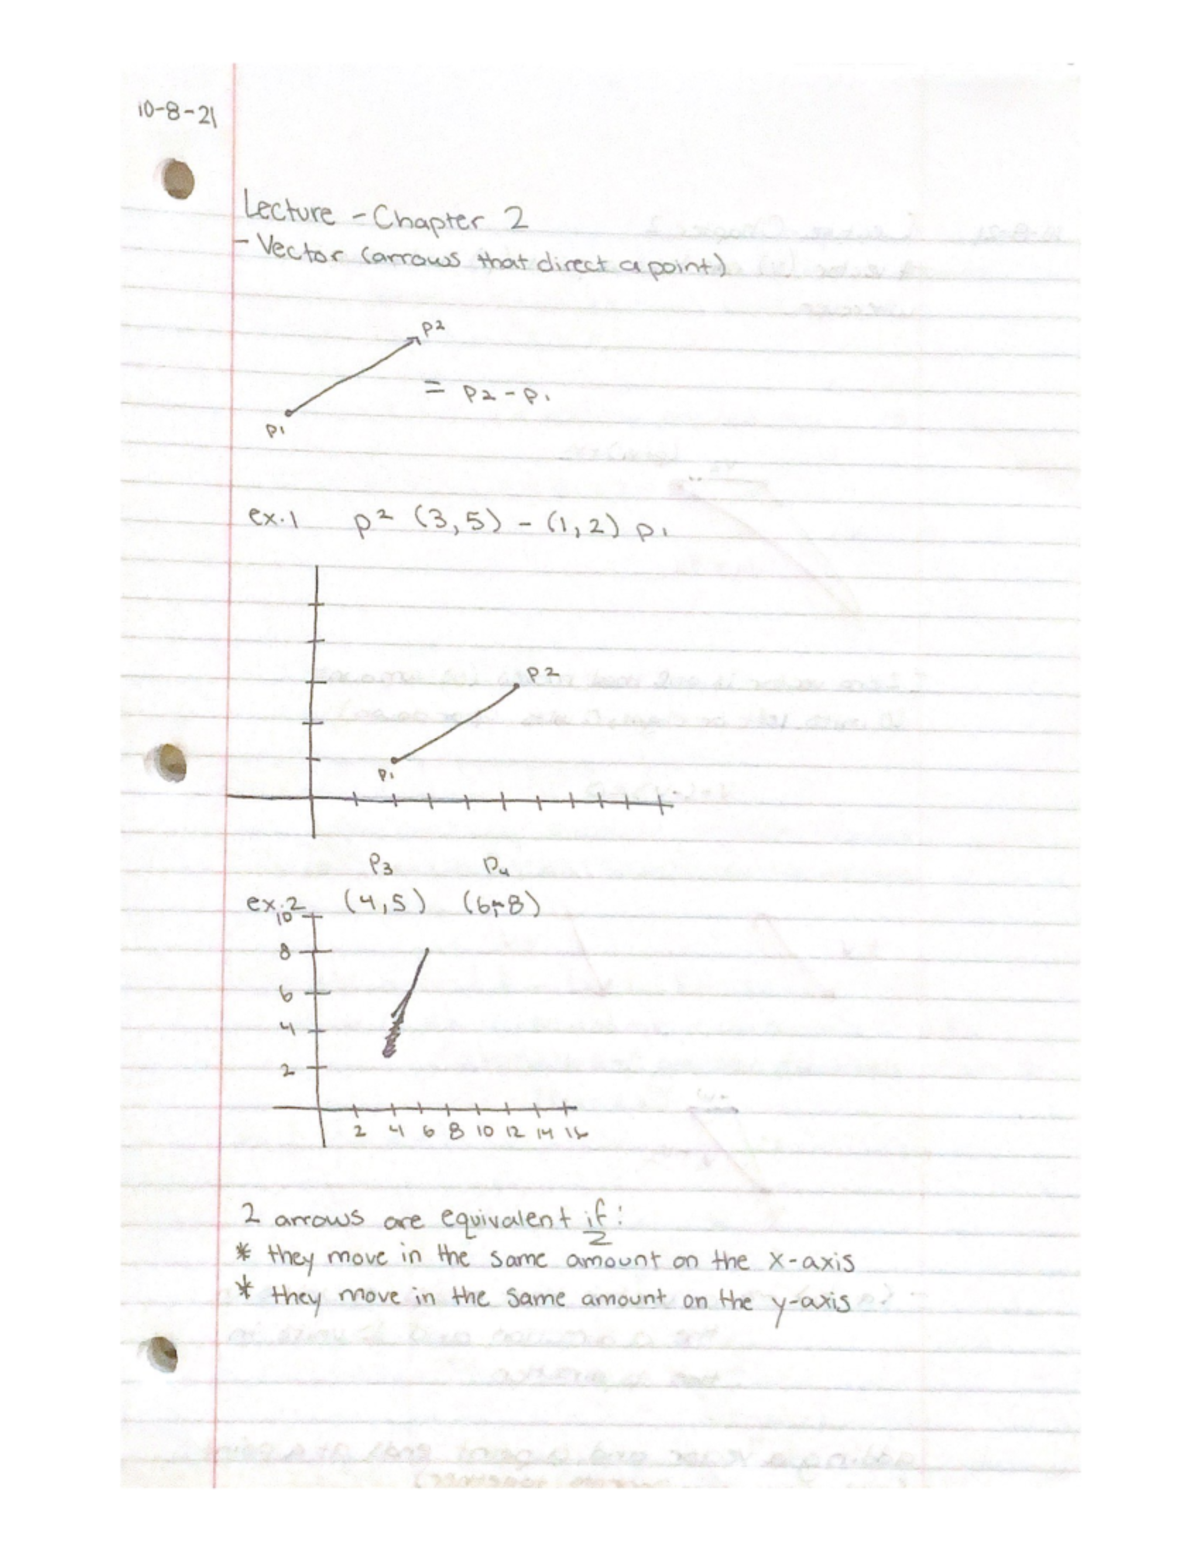 10-8-21
Lecture - Chapter 2
- Vector (arrows that direct a point)
p2
= p2 - p1
p1
ex.1 p2 (3,5) - (1,2) p1
p2
p1
p3 p4
ex.2 (4,5) (6,8)
10
8
6
4
2
2 4 6 8 10 12 14 16
2 arrows are equivalent if:
2
* they move in the same amount on the x-axis
* they move in the same amount on the y-axis